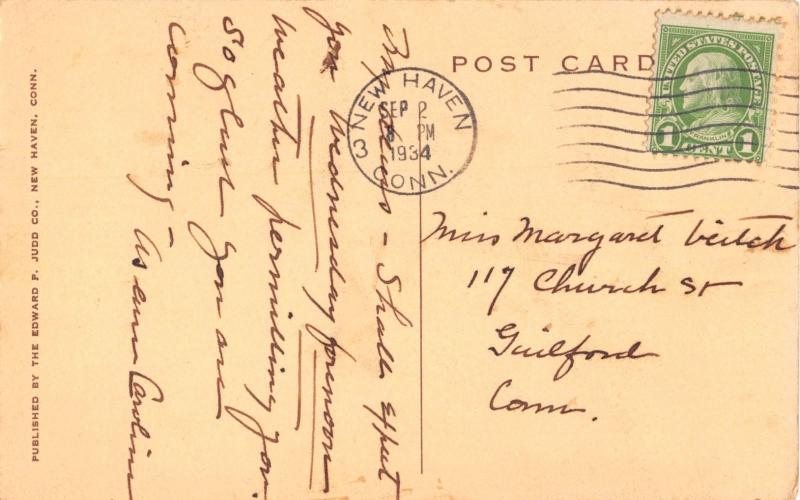 POST CARD
UNITED STATES POSTAGE
FRANKLIN
1 CENT 1
NEW HAVEN
SEP 2
6 PM
1934
3 CONN.
Miss Margaret Veitch
117 Church St
Guilford
Conn.
- Shall expect
you Wednesday forenoon
weather permitting you.
So glad you are
coming -
As ever Caroline
PUBLISHED BY THE EDWARD P. JUDD CO., NEW HAVEN, CONN.